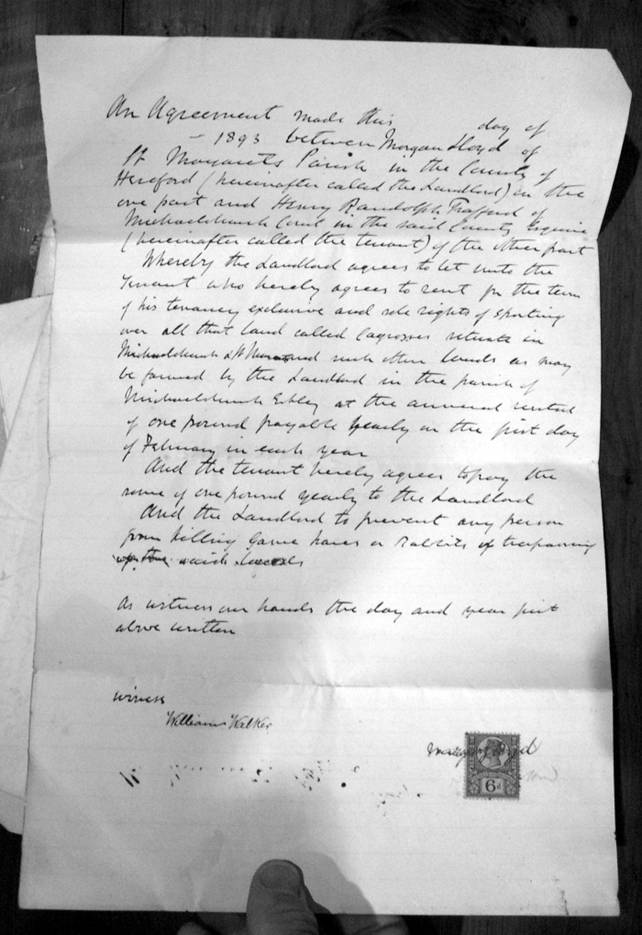 An Agreement made this day of
– 1893 between Morgan Lloyd of
St Margarets Parish in the County of
Hereford (hereinafter called the Landlord) on the
one part and Henry Randolph Trafford of
Michaelchurch Court in the said County Esquire
(hereinafter called the tenant) of the other part
Whereby the Landlord agrees to let unto the
Tenant who hereby agrees to rent for the term
of his tenancy exclusive and sole rights of sporting
over all that land called situate in
Michaelchurch and such other lands as may
be farmed by the Landlord in the parish of
Michaelchurch Eskley at the annual rental
of one pound payable yearly on the first day
of February in each year
And the tenant hereby agrees to pay the
sume of one pound yearly to the Landlord
And the Landlord to prevent any person
from killing Game hares or rabbits or trespassing
said
As witness our hands the day and year first
above written
witness
William Walker
Morgan Lloyd
6d